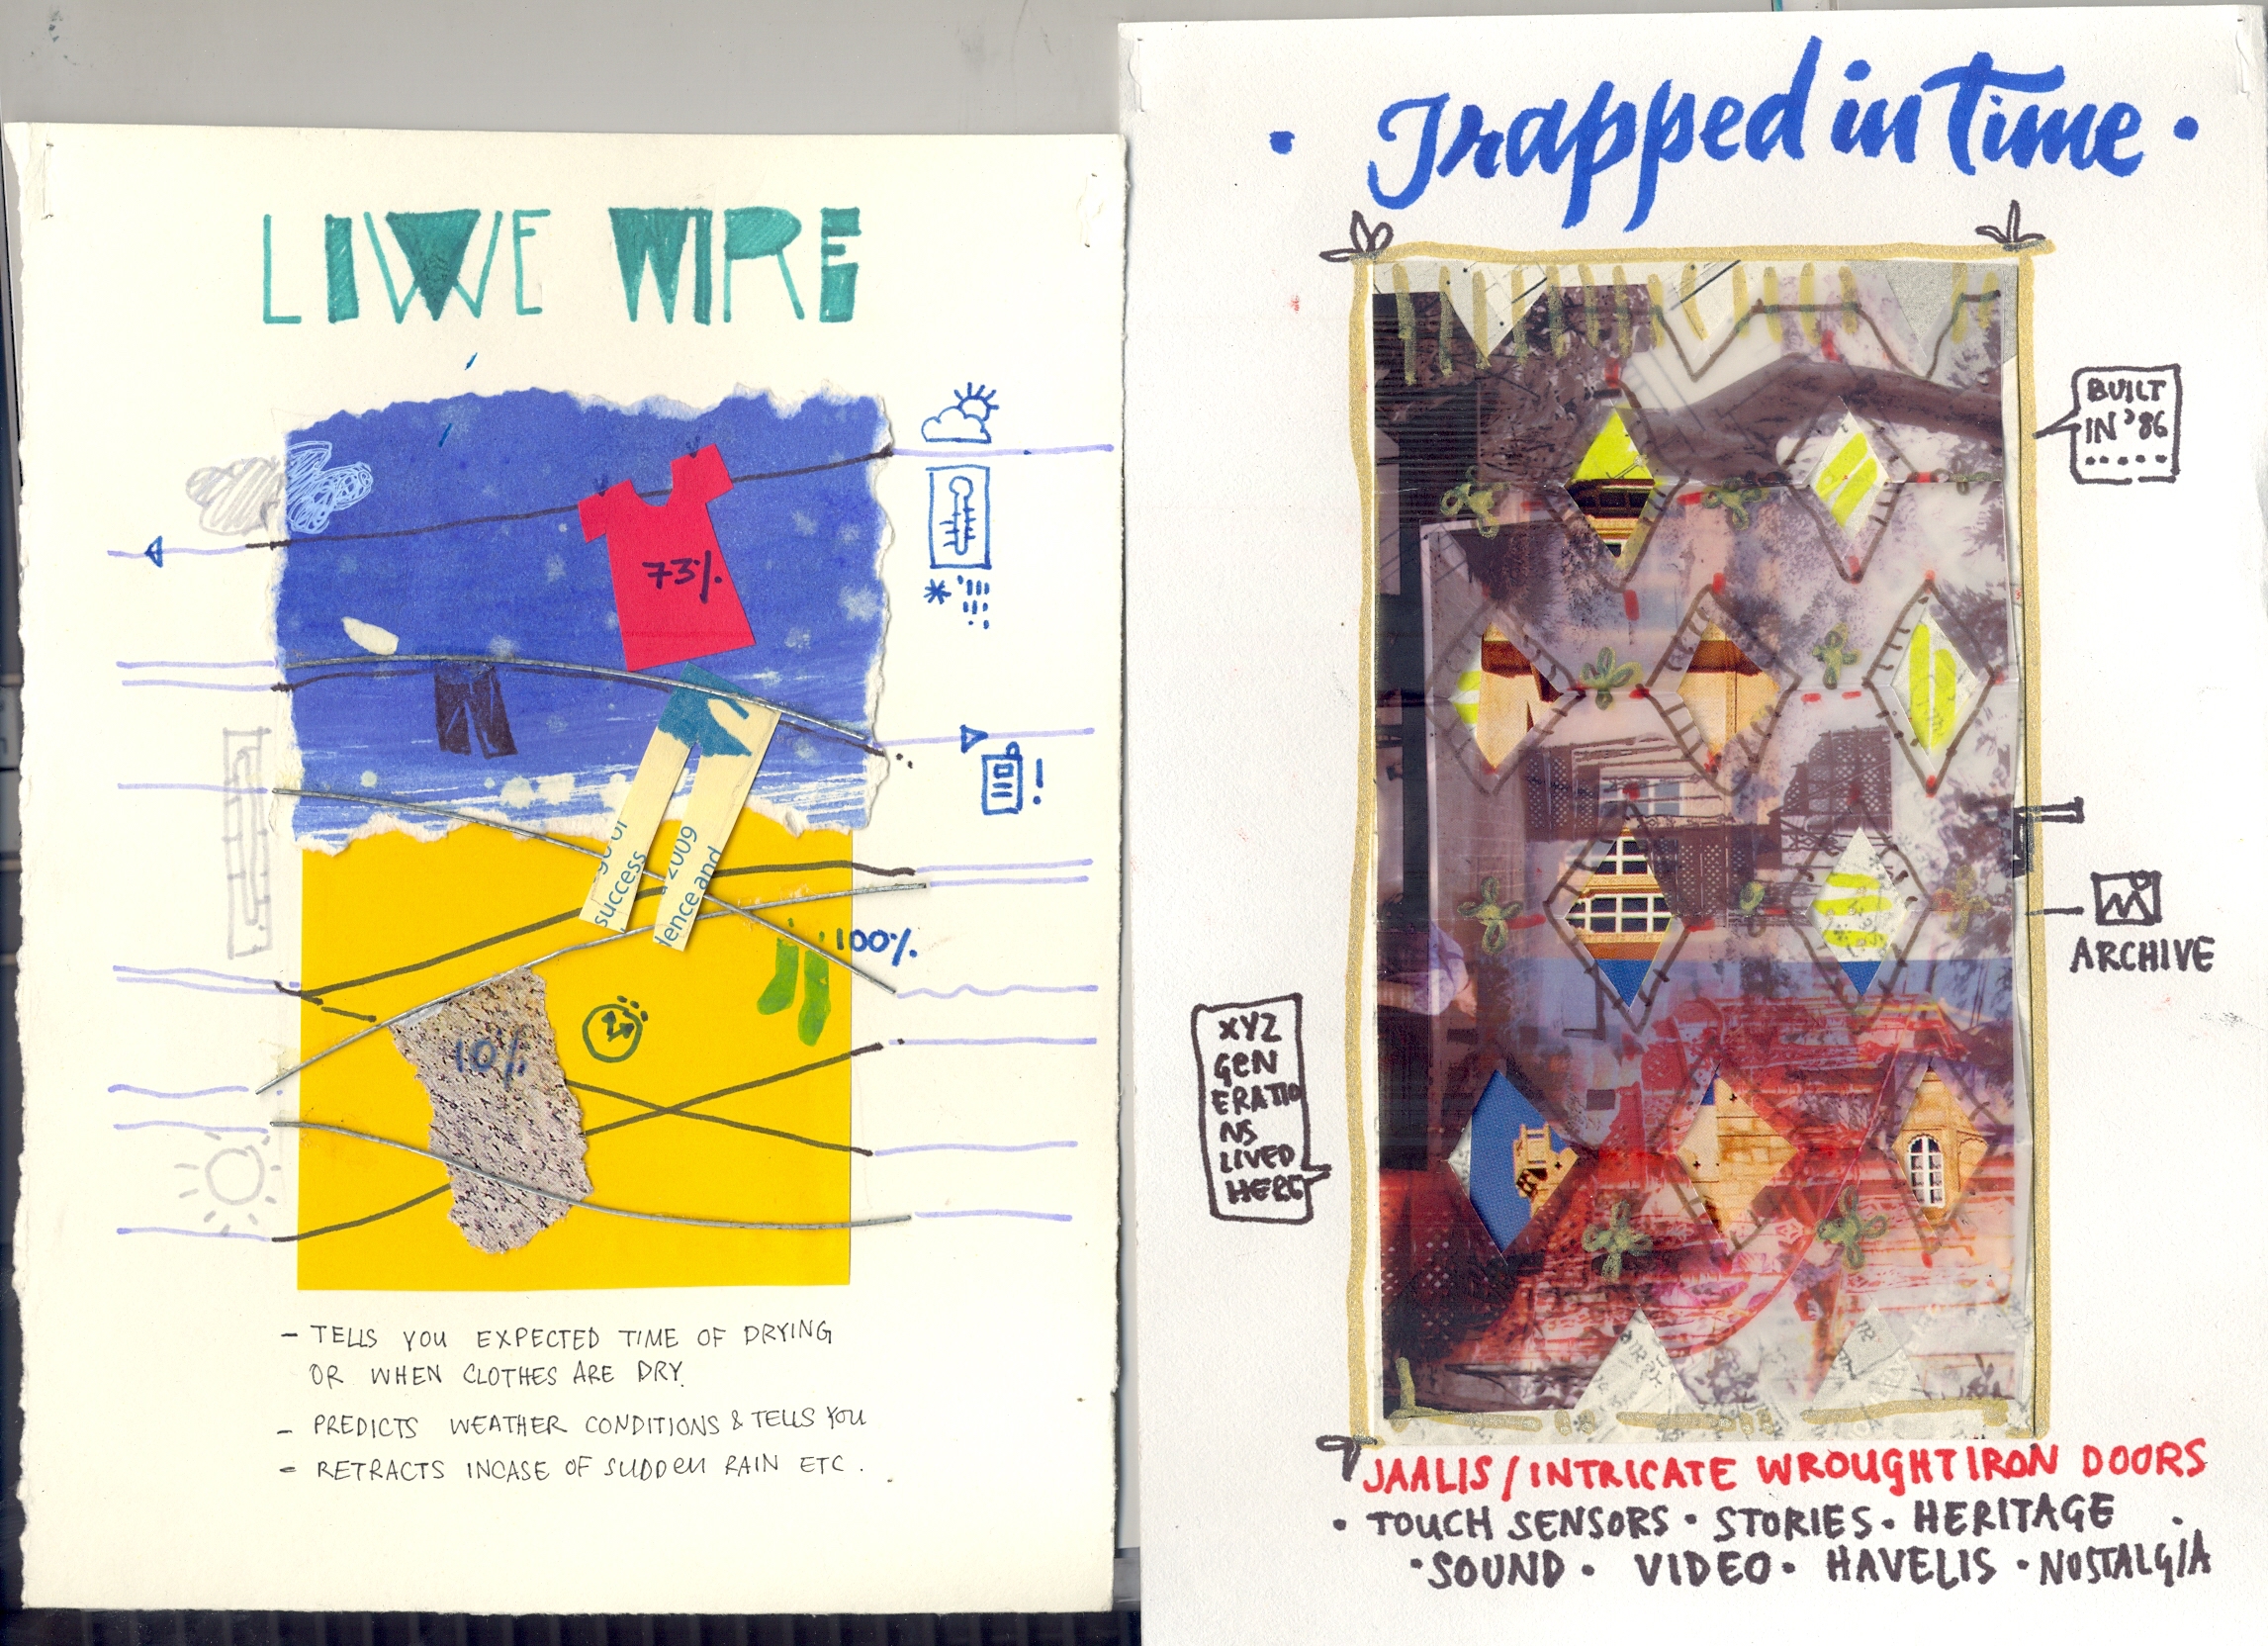 LIVE WIRE
73%
success
2009
and
100%
10%
- TELLS YOU EXPECTED TIME OF DRYING
OR WHEN CLOTHES ARE DRY.
- PREDICTS WEATHER CONDITIONS & TELLS YOU
- RETRACTS INCASE OF SUDDEN RAIN ETC.
• Trapped in Time •
BUILT
IN '86
......
ARCHIVE
XYZ
GEN
ERATIO
NS
LIVED
HERE
JAALIS / INTRICATE WROUGHT IRON DOORS
• TOUCH SENSORS • STORIES • HERITAGE •
• SOUND • VIDEO • HAVELIS • NOSTALGIA